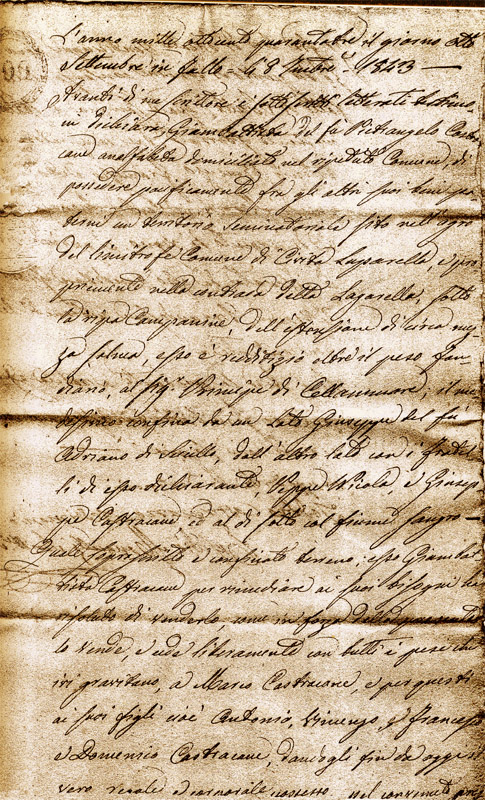 L'anno mille ottocento quarantatre il giorno otto
Settembre in Fallo = 8 Settbre 1843 =
Avanti di me scrittore e sottoscritti letterati testimoni
si dichiara Giambattista del fu Pietrangelo Castra
cane analfabeta domiciliato nel ripetuto Comune, di
possedere pacificamente fra gli altri suoi beni pa
terni un territorio seminatoriale sito nell'agro
del limitrofe Comune di Civita Luparella, e pro
priamente nella contrada detta Lagarella, sotto
la ripa Campanine, dell'estensione di circa mez
za salma, esso è redditizio oltre il peso fon
diario, al Sig. Principe di Cellammare, il me
desimo confina da un lato Giuseppe del fu
Adriano di Sciullo, dall'altro lato con i fratel
li di esso dichiarante, Nicola, e Giusep
pe Castracane ed al di sotto col fiume Sangro =
Quale soprascritto e confinato terreno, esso Giambat
tista Castracane per rimediare ai suoi bisogni ha
risoluto di venderlo come in forza
lo vende, e cede liberamente con tutti i pesi che
ivi gravitano, a Marco Castracane, e per questi
ai suoi figli cioè Antonio, Vincenzo, Francesco
e Domenico Castracane, dandogli fin da oggi il
vero reale e corporale possesso nel convenuto prez